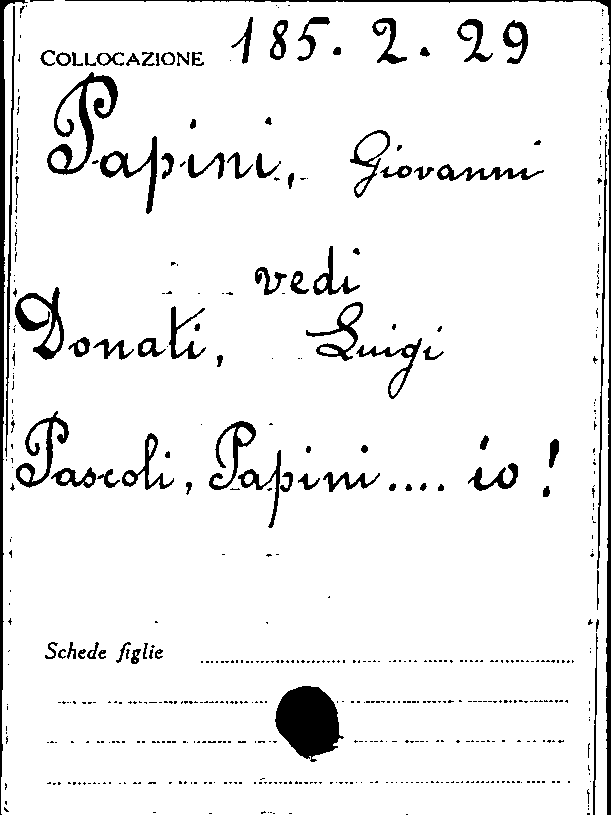 COLLOCAZIONE 185. 2. 29
Papini, Giovanni
vedi
Donati, Luigi
Pascoli, Papini.... io!
Schede figlie